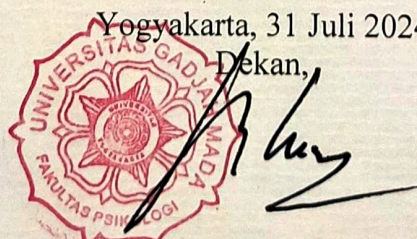 Yogyakarta, 31 Juli 2024
Dekan,
UNIVERSITAS GADJAH MADA
FAKULTAS PSIKOLOGI